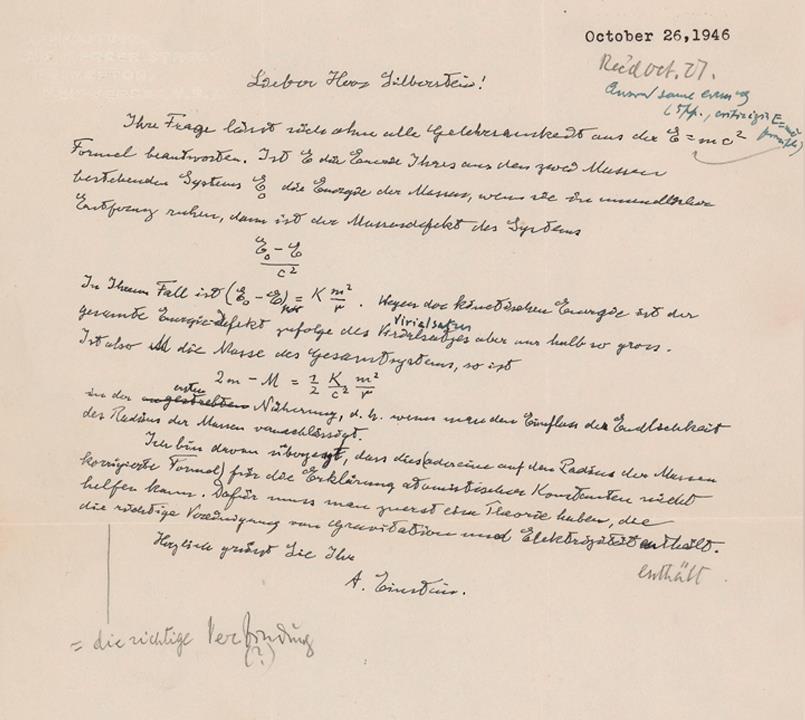 October 26, 1946
Rec'd Oct. 27.
Lieber Herr Silberstein!
Ihre Frage lässt sich ohne alle Gelehrsamkeit aus der E = mc²
Formel beantworten. Ist E die Energie Ihres aus den zwei Massen
bestehenden Systems E₀ die Energie der Massen, wenn sie in unendlicher
Entfernung ruhen, dann ist der Massendefekt des Systems
E₀ – E
c²
In Ihrem Fall ist (E₀ – E) = K m²/r . Wegen der kinetischen Energie ist der
Virialsatzes
gesamte Energie-Defekt zufolge des Virialsatzes aber nur halb so gross.
Ist also M die Masse des Gesamtsystems, so ist
2m – M = 1/2 K/c² m²/r
ersten
in der angestrebten Näherung, d. h. wenn man den Einfluss der Endlichkeit
des Radius der Massen vernachlässigt.
Ich bin davon überzeugt, dass dies (oder eine auf den Radius der Massen
korrigierte Formel) für die Erklärung atomistischer Konstanten nicht
helfen kann. Dafür muss man zuerst eine Theorie haben, die
die richtige Vereinigung von Gravitation und Elektrizität enthält.
enthält
Herzlich grüsst Sie Ihr
A. Einstein.
= die richtige Verbindung
(?)